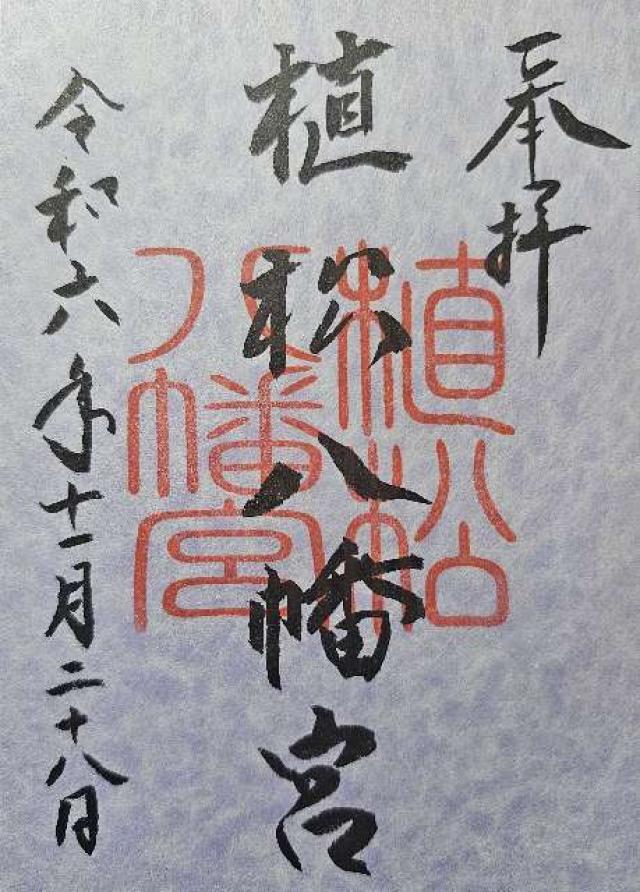 奉拝
植松八幡宮
植松
八幡宮
令和六年十一月二十八日